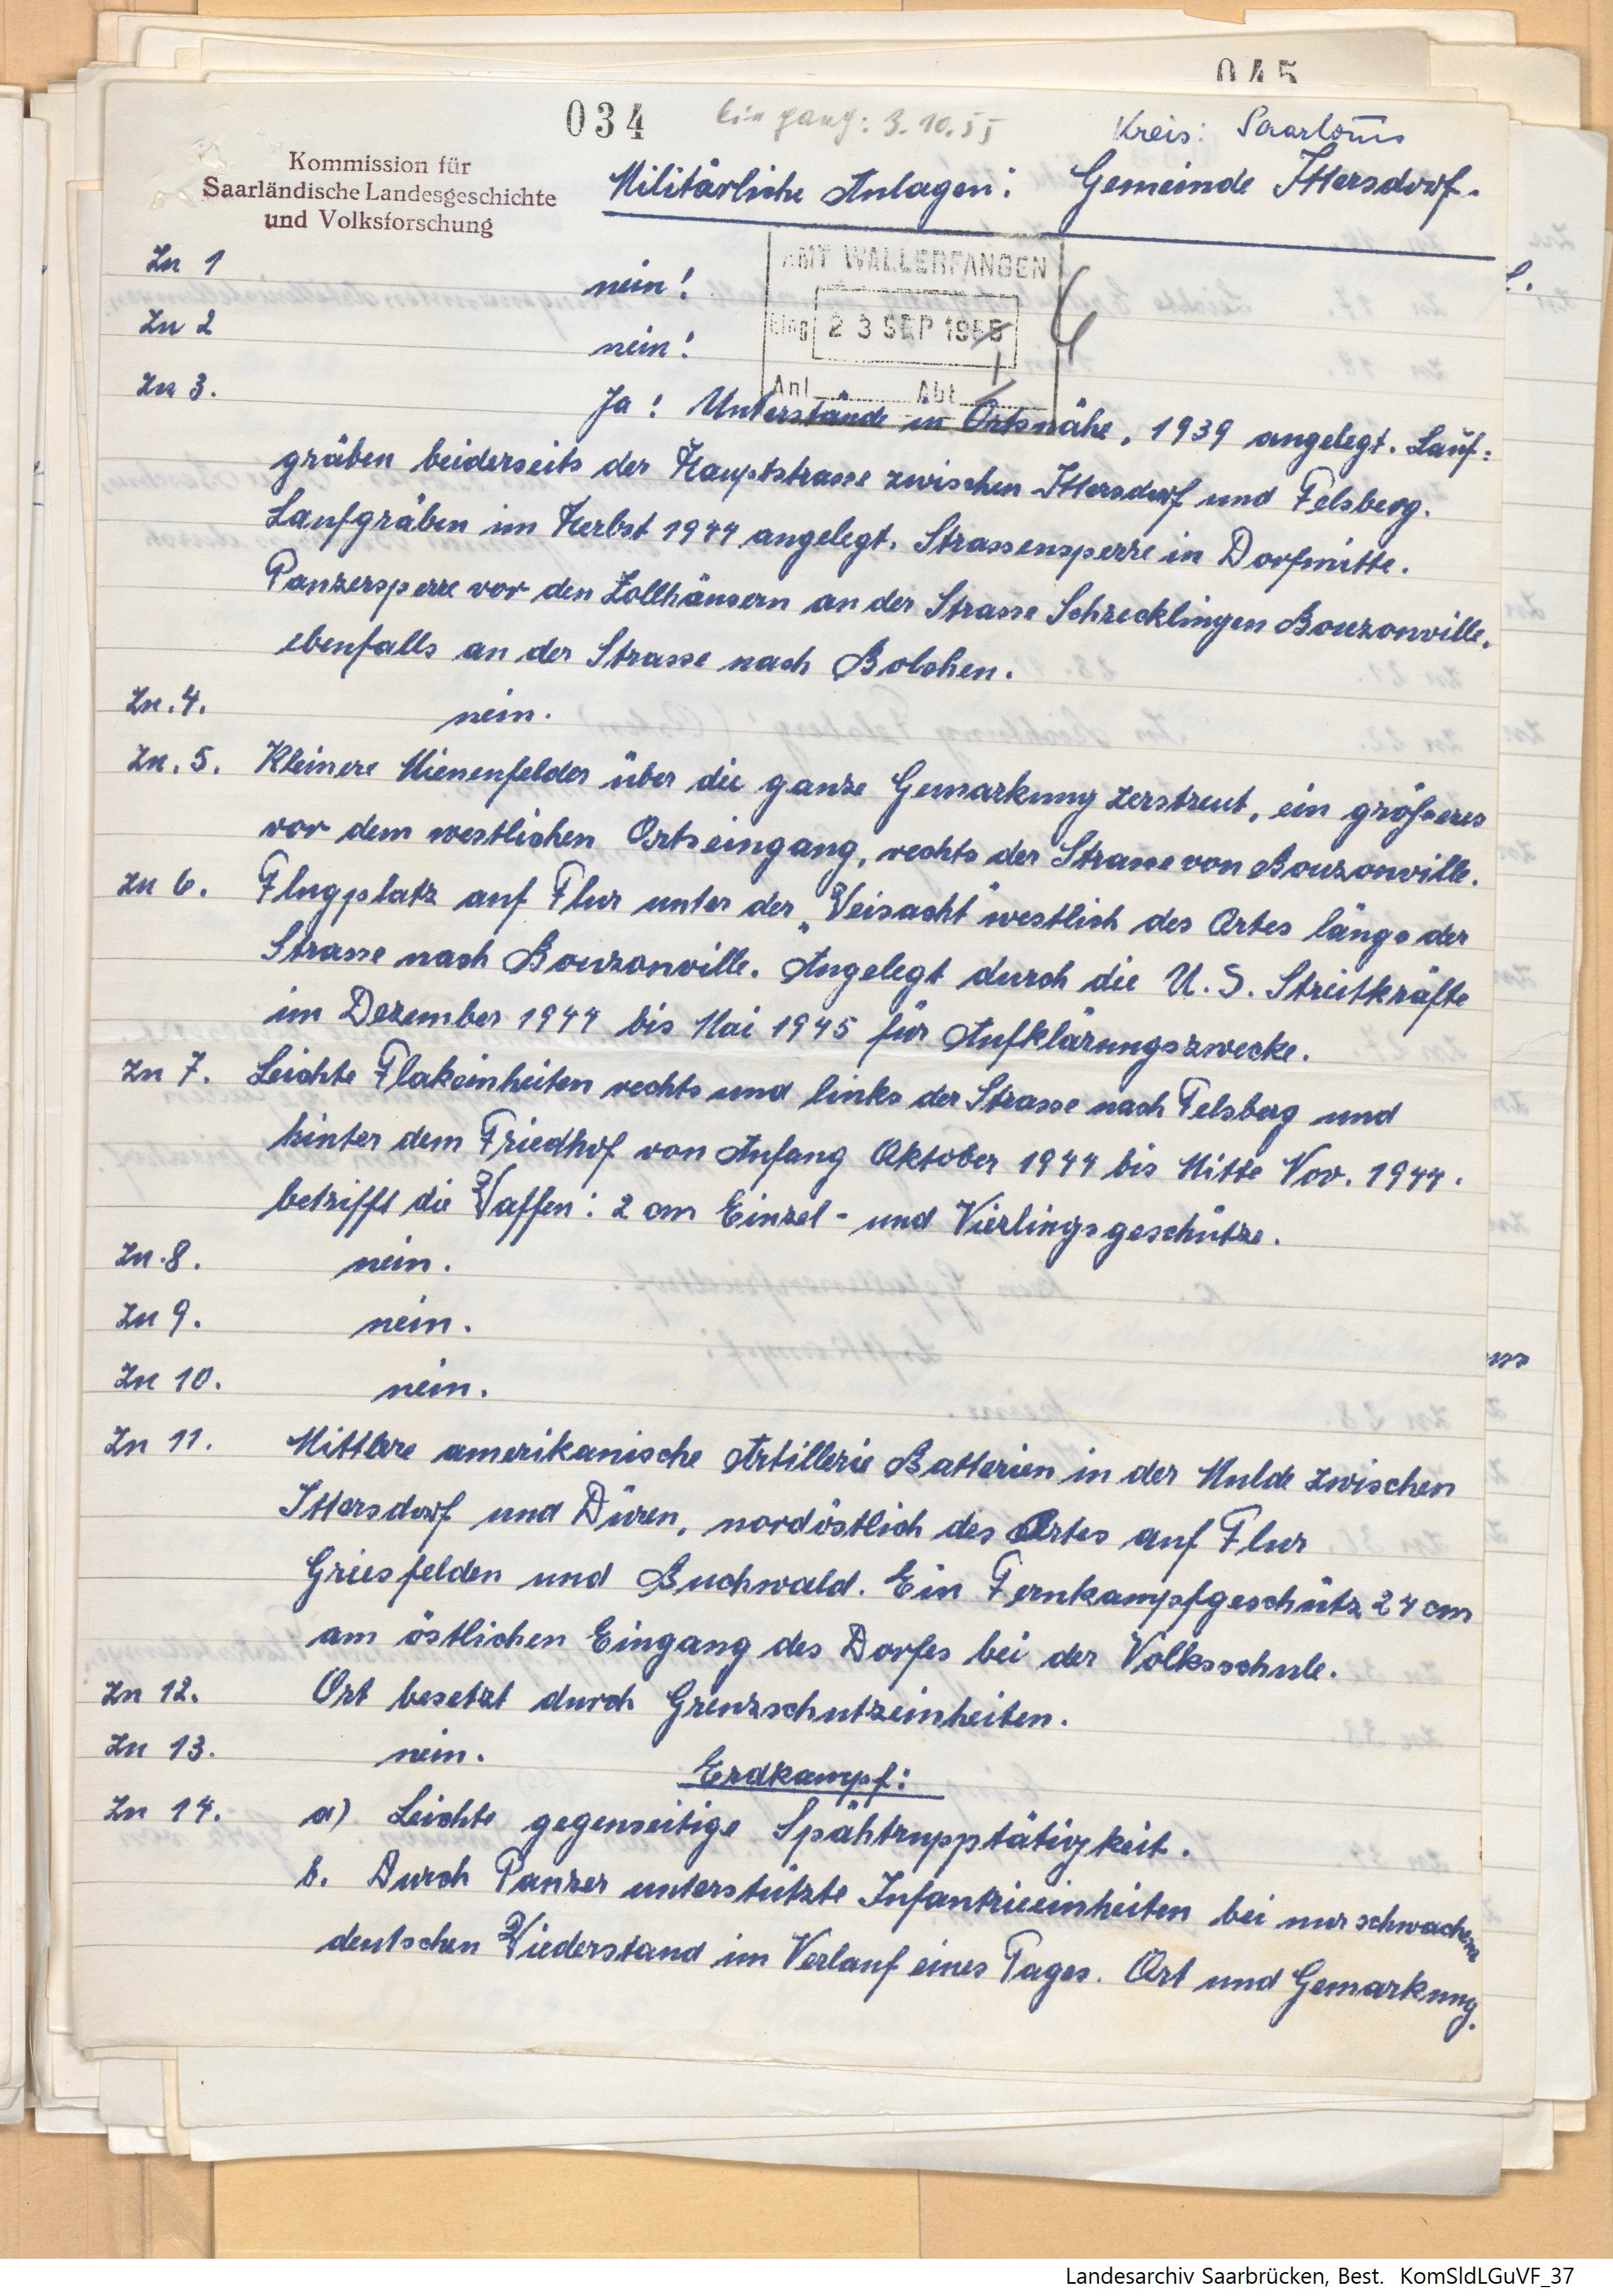 045
034
Eingang: 3.10.55
Kreis: Saarlouis
Kommission für
Saarländische Landesgeschichte
und Volksforschung
Militärliche Anlagen: Gemeinde Ittersdorf.
AMT WALLERFANGEN
Eing. 23 SEP 1955
Anl. Abt.
Zu 1 nein!
Zu 2 nein!
Zu 3. Ja! Unterstände in Ortsnähe, 1939 angelegt. Lauf:
gräben beiderseits der Hauptstrasse zwischen Ittersdorf und Felsberg.
Laufgräben im Herbst 1944 angelegt. Strassensperre in Dorfmitte.
Panzersperre vor den Zollhäusern an der Strasse Schrecklingen Bouzonville,
ebenfalls an der Strasse nach Bolchen.
Zu. 4. nein.
Zu. 5. Kleinere Mienenfelder über die ganze Gemarkung zerstreut, ein größeres
vor dem westlichen Ortseingang, rechts der Strasse von Bouzonville.
Zu 6. Flugplatz auf Flur unter der „Weisacht" westlich des Ortes längs der
Strasse nach Bouzonville. Angelegt durch die U.S. Streitkräfte
im Dezember 1944 bis Mai 1945 für Aufklärungszwecke.
Zu 7. Leichte Flakeinheiten rechts und links der Strasse nach Felsberg und
hinter dem Friedhof von Anfang Oktober 1944 bis Mitte Nov. 1944.
betrifft die Waffen: 2 cm Einzel- und Vierlingsgeschütze.
Zu. 8. nein.
Zu 9. nein.
Zu 10. nein.
Zu 11. Mittlere amerikanische Artillerie Batterien in der Mulde zwischen
Ittersdorf und Düren, nordöstlich des Ortes auf Flur
Griesfelden und Buchwald. Ein Fernkampfgeschütz 24 cm
am östlichen Eingang des Dorfes bei der Volksschule.
Zu 12. Ort besetzt durch Grenzschutzeinheiten.
Zu 13. nein.
Erdkampf:
Zu 14. a) Leichte gegenseitige Spähtrupptätigkeit.
b. Durch Panzer unterstützte Infantrieeinheiten bei nur schwachem
deutschen Wiederstand im Verlauf eines Tages. Ort und Gemarkung.
Landesarchiv Saarbrücken, Best. KomSldLGuVF_37